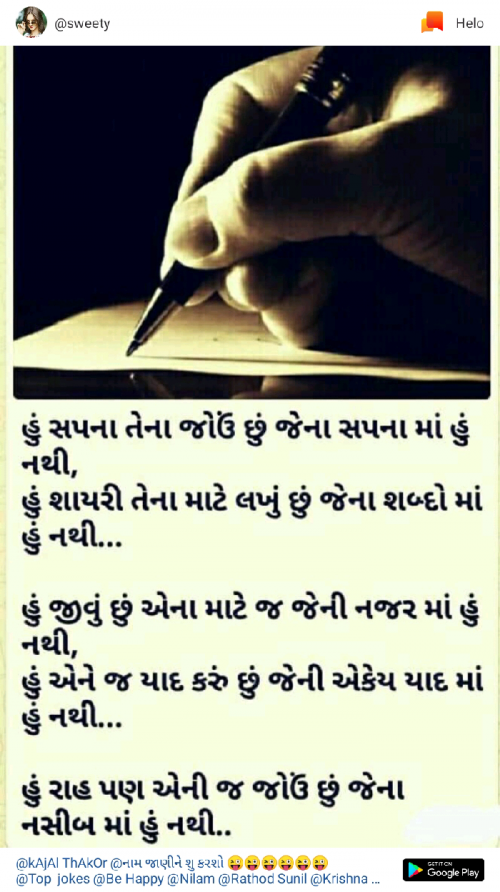 @sweety
Helo
હું સપના તેના જોઉં છું જેના સપના માં હું
નથી,
હું શાયરી તેના માટે લખું છું જેના શબ્દો માં
હું નથી...
હું જીવું છું એના માટે જ જેની નજર માં હું
નથી,
હું એને જ યાદ કરું છું જેની એકેય યાદ માં
હું નથી...
હું રાહ પણ એની જ જોઉં છું જેના
નસીબ માં હું નથી..
@kAjAl ThAkOr @નામ જાણીને શુ કરશો 😜😜😜😜😜😜
@Top jokes @Be Happy @Nilam @Rathod Sunil @Krishna ...
GET IT ON
Google Play